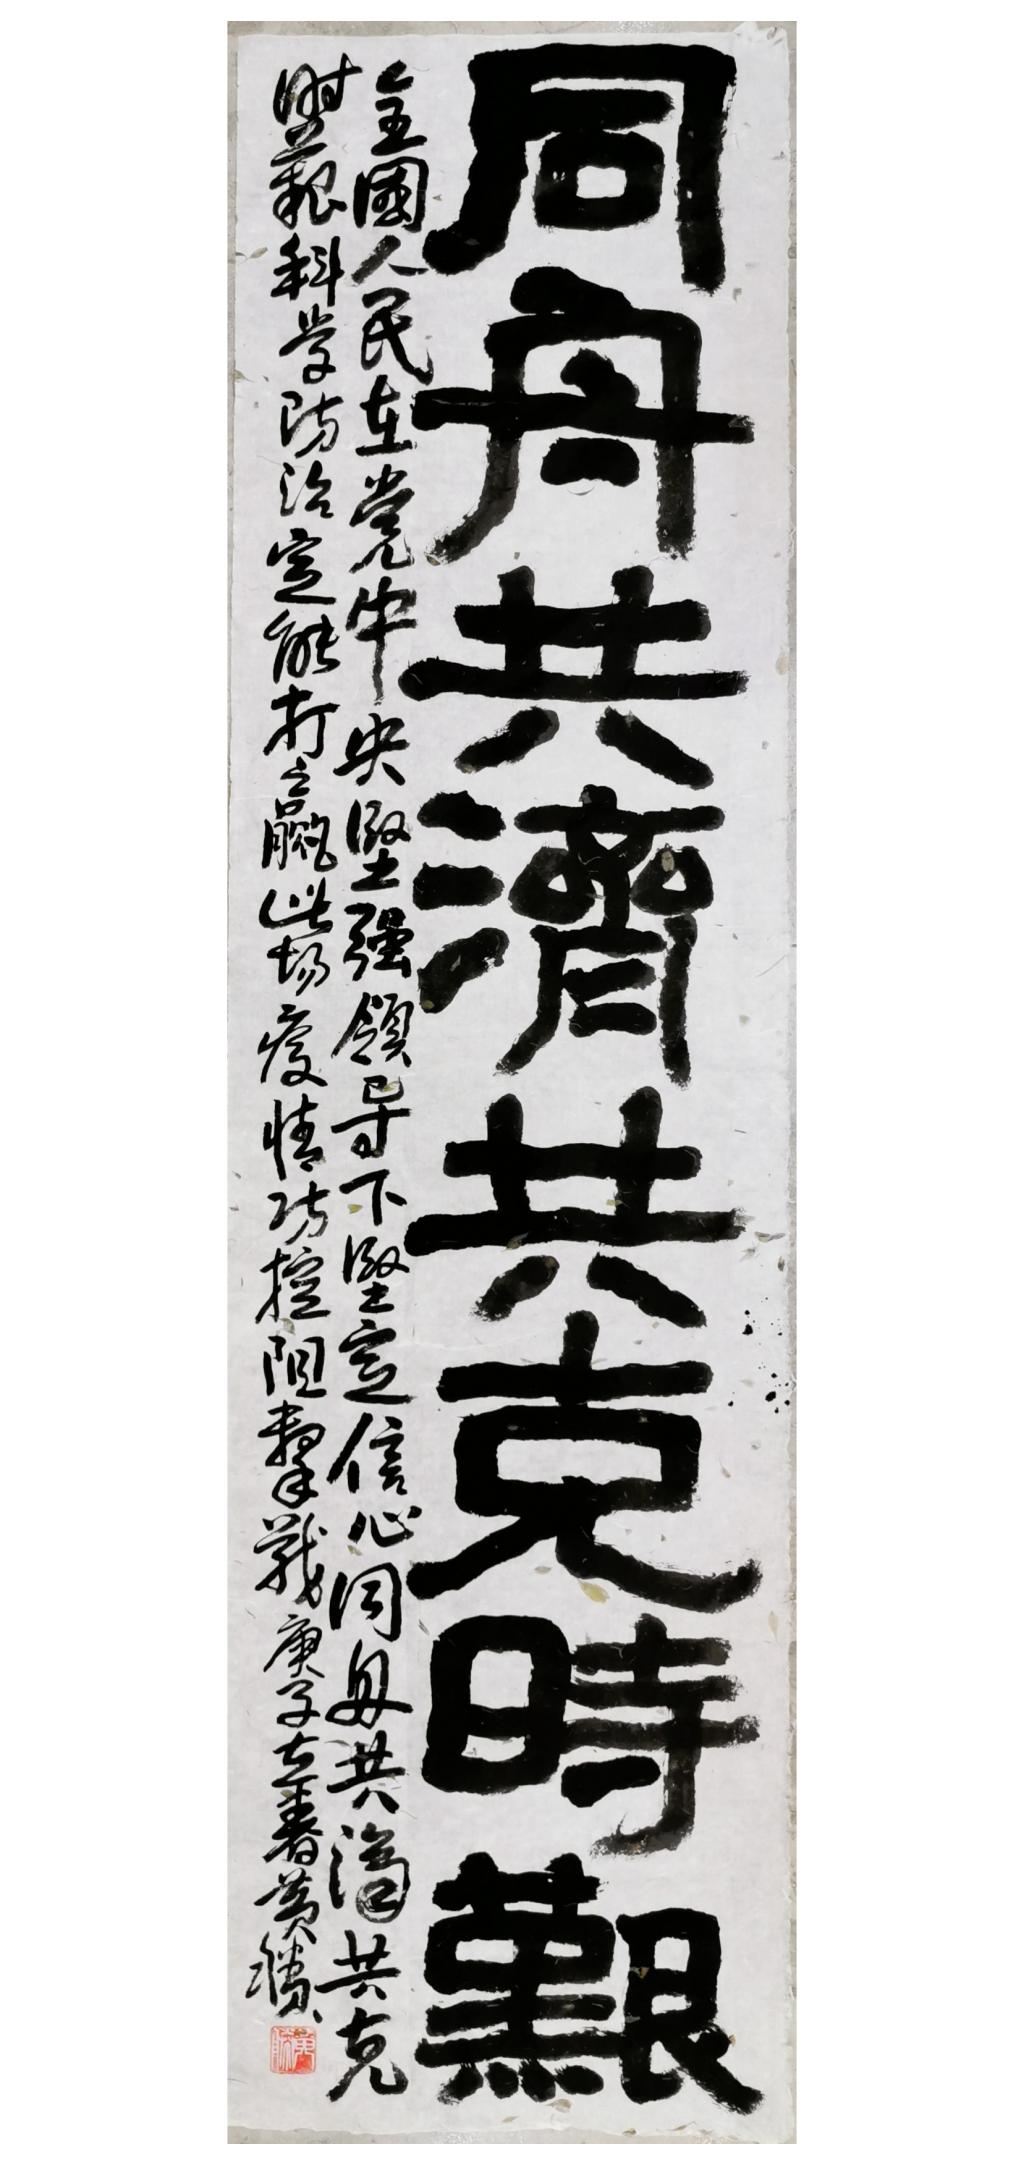 同舟共濟共克時艱
全國人民在党中央堅强領导下堅定信心同舟共濟共克
時艱科学防治定能打赢此场疫情防控阻擊戰庚子立春黄